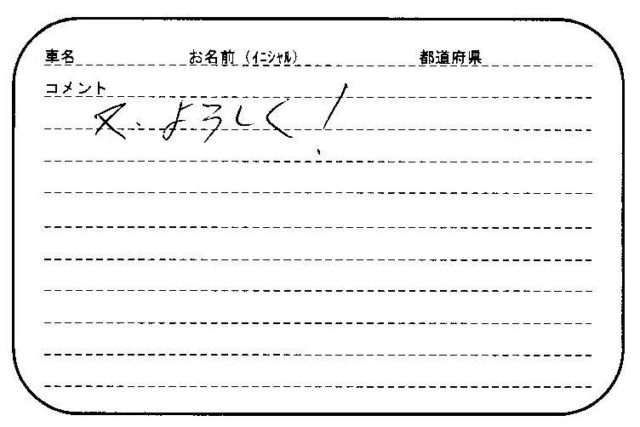 車名 お名前（イニシャル） 都道府県
コメント
又、よろしく！